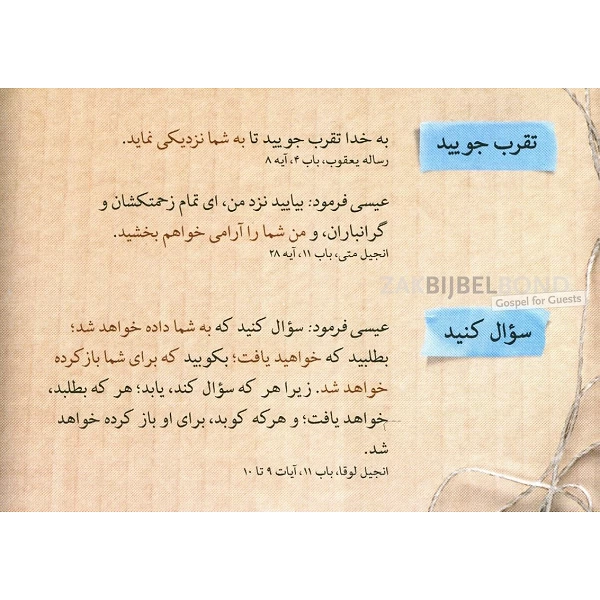 تقرب جویید
به خدا تقرب جویید تا به شما نزدیکی نماید.
رساله یعقوب، باب ۴، آیه ۸
عیسی فرمود: بیایید نزد من، ای تمام زحمتکشان و
گرانباران، و من شما را آرامی خواهم بخشید.
انجیل متی، باب ۱۱، آیه ۲۸
ZAKBIJBELBOND
Gospel for Guests
سؤال کنید
عیسی فرمود: سؤال کنید که به شما داده خواهد شد؛
بطلبید که خواهید یافت؛ بکوبید که برای شما بازکرده
خواهد شد. زیرا هر که سؤال کند، یابد؛ هر که بطلبد،
خواهد یافت؛ و هرکه کوبد، برای او باز کرده خواهد
شد.
انجیل لوقا، باب ۱۱، آیات ۹ تا ۱۰